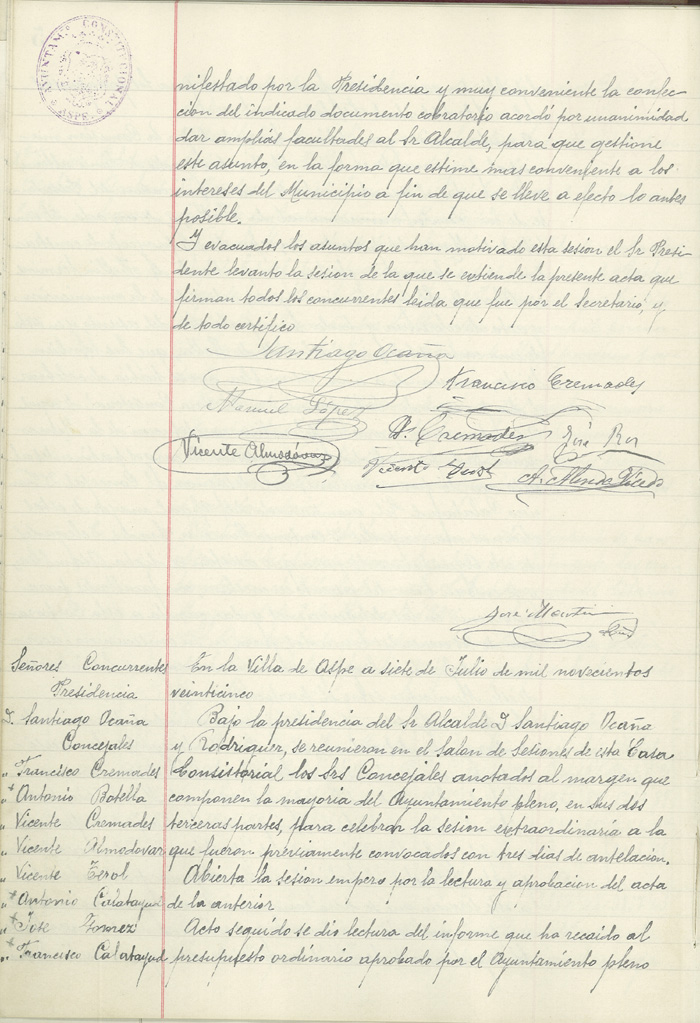 AYUNTAM. CONSTITUCIONAL
ASPE
nifestado por la Presidencia y muy conveniente la confec-
cion del indicado documento cobratorio acordó por unanimidad
dar amplias facultades al Sr Alcalde, para que gestione
este asunto, en la forma que estime mas conveniente a los
intereses del Municipio a fin de que se lleve a efecto lo antes
posible.
Y evacuados los asuntos que han motivado esta sesion el Sr Presi-
dente levanto la sesion de la que se extiende la presente acta que
firman todos los concurrentes leida que fue por el secretario, y
de todo certifico
Santiago Ocaña
Francisco Cremades
Manuel López
V. Cremades
José
Vicente Almodóvar
Vicente
A.
José Martin
Señores Concurrentes
Presidencia
D. Santiago Ocaña
Concejales
„ Francisco Cremades
„ + Antonio Botella
„ Vicente Cremades
„ Vicente Almodovar
„ Vicente Terol
„ + Antonio Calatayud
„ + Jose
„ + Francisco Calatayud
En la Villa de Aspe a siete de Julio de mil novecientos
veinticinco
Bajo la presidencia del Sr Alcalde D Santiago Ocaña
y Rodriguez, se reunieron en el Salon de Sesiones de esta Casa
Consistorial los Srs Concejales anotados al margen que
componen la mayoria del Ayuntamiento pleno, en sus dos
terceras partes, para celebrar la sesion extraordinaria a la
que fueron previamente convocados con tres dias de antelacion.
Abierta la sesion empezo por la lectura y aprobacion del acta
de la anterior
Acto seguido se dio lectura del informe que ha recaido al
presupuesto ordinario aprobado por el Ayuntamiento pleno